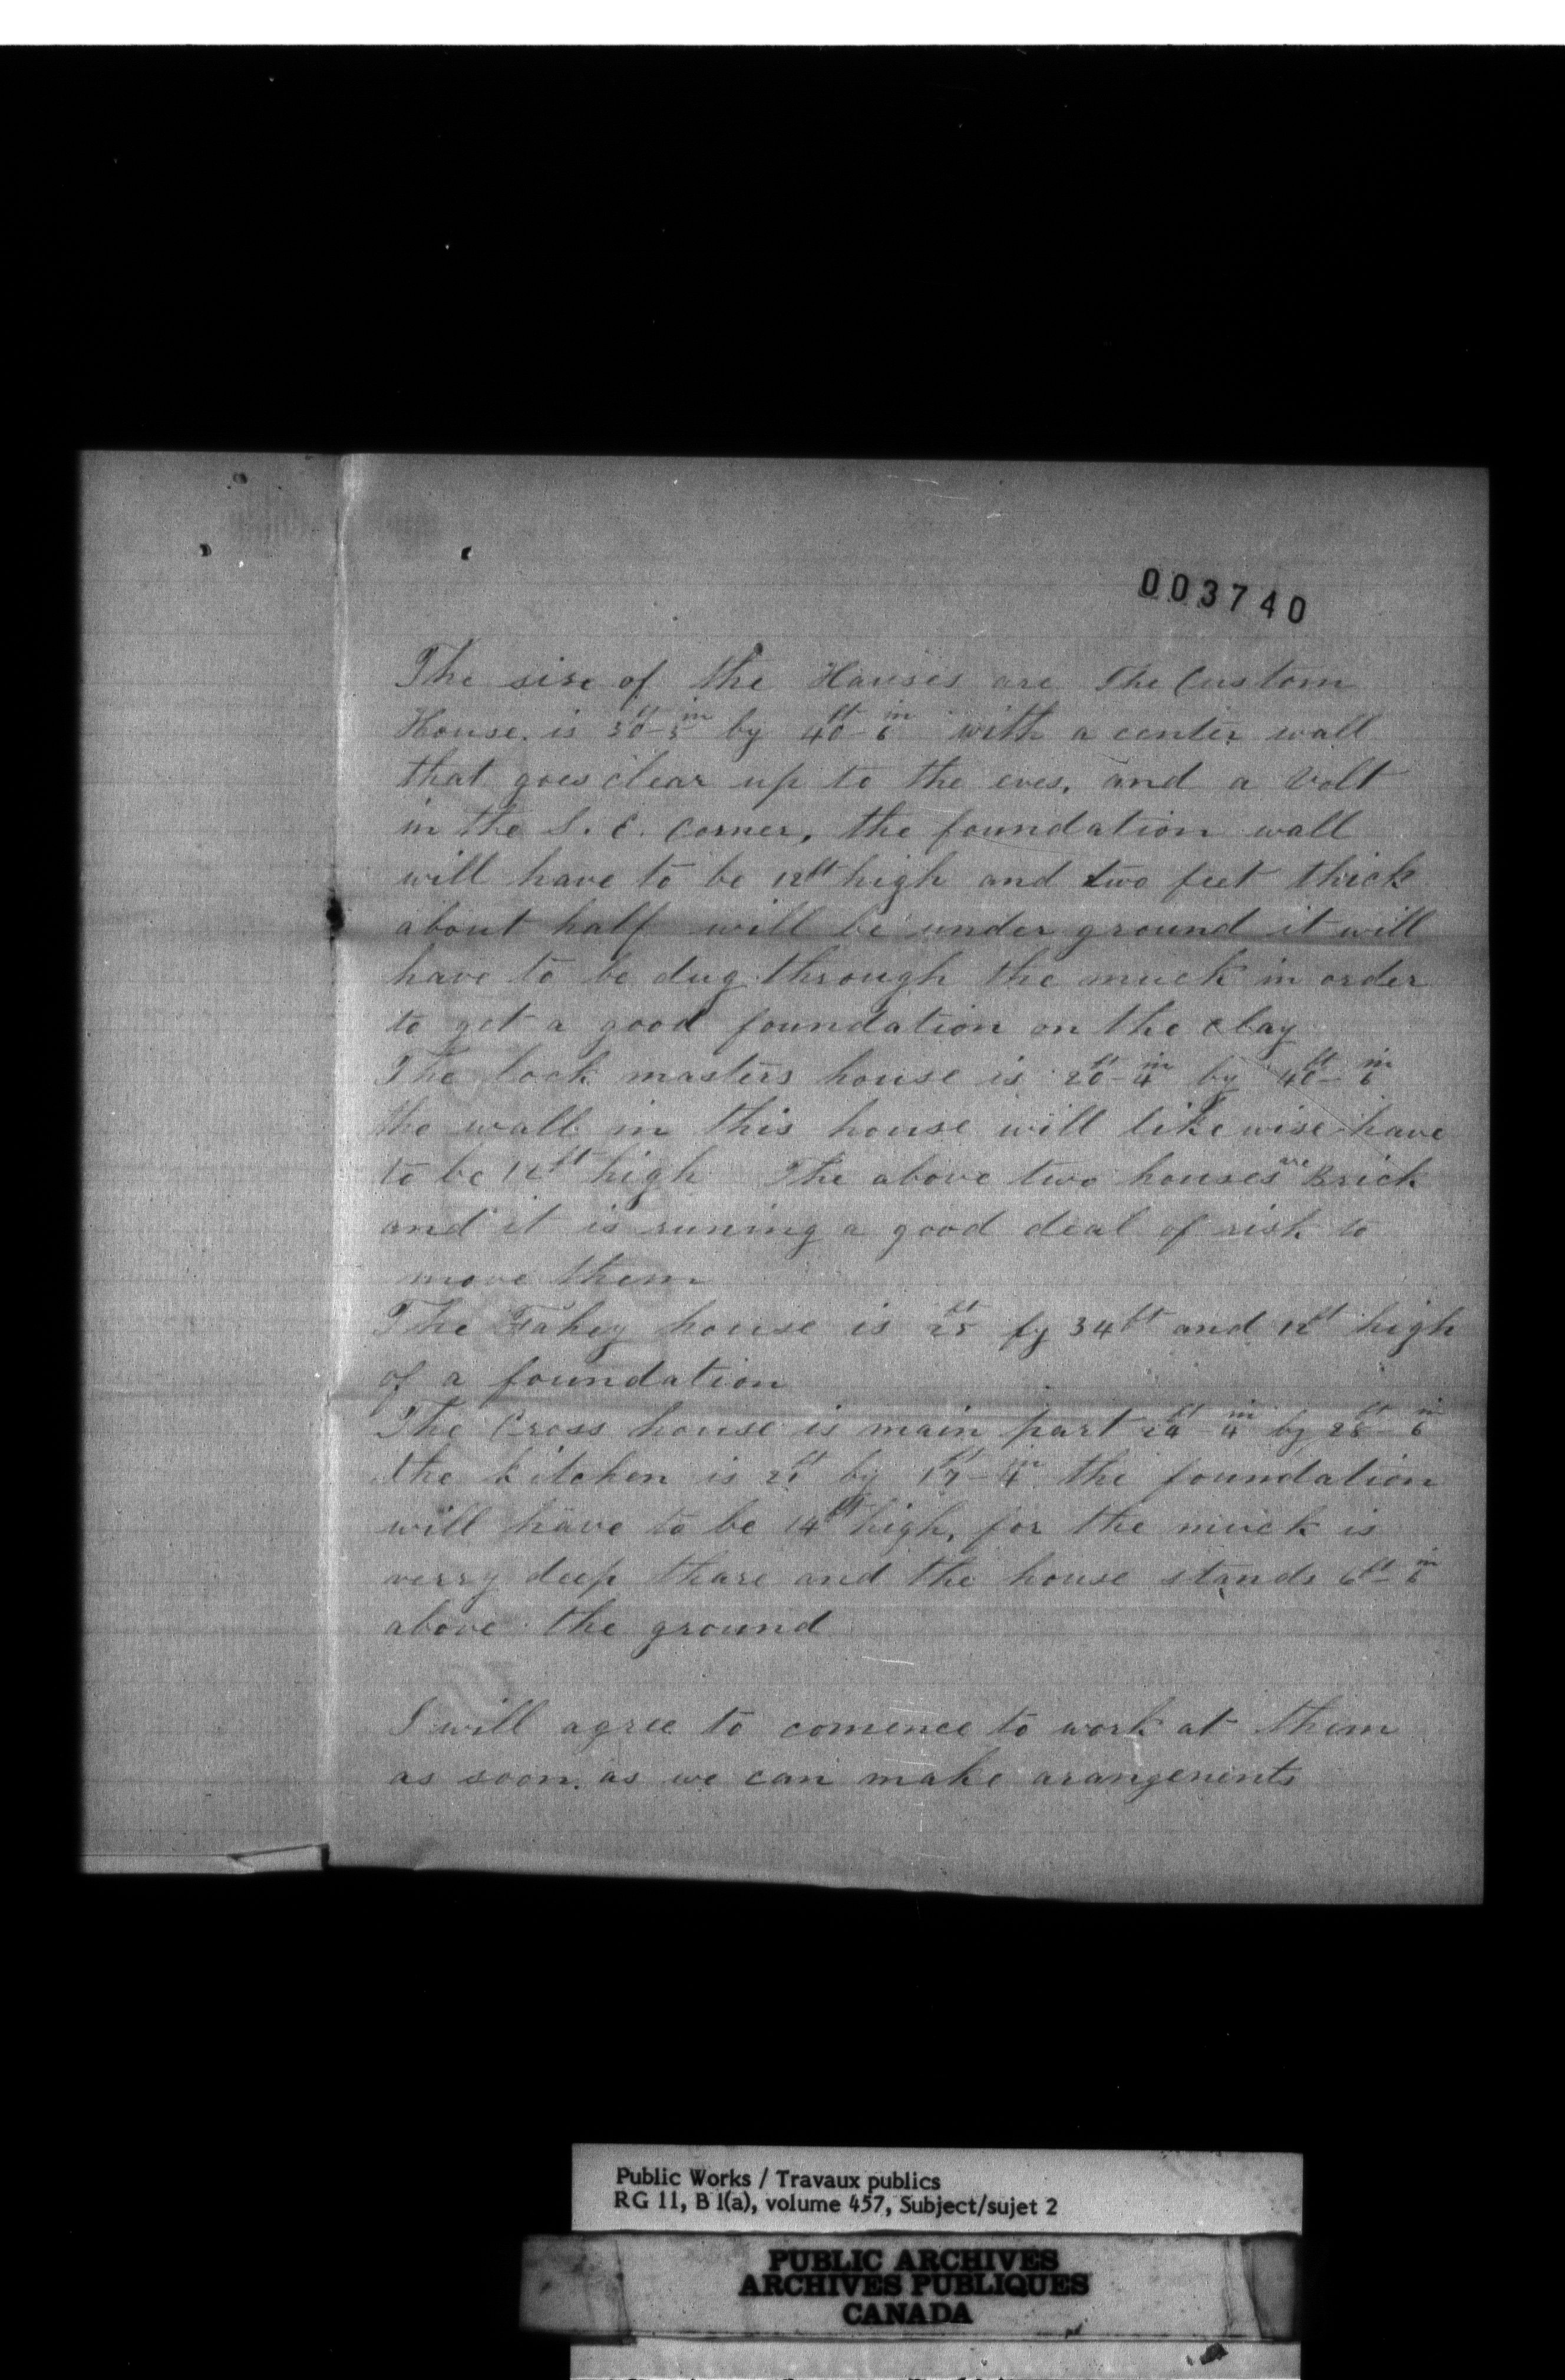 003740
The sise of the Hauses are The Custom
House. is 30ft-5in by 40ft-6in with a center wall
that goes clear up to the eves, and a Volt
in the S. E. Corner, the foundation wall
will have to be 12ft high and two feet thick
about half will be under ground it will
have to be dug through the muck in order
to get a good foundation on the clay
The lock masters house is 20ft-4in by 40ft-6in
the wall in this house will like wise have
to be 12ft high The above two houses are Brick
and it is runing a good deal of risk to
move them
The Fahey house is 25ft by 34ft and 12ft high
of a foundation
The Cross house is main part 24ft-4in by 28ft-6in
the kitchen is 21ft by 17ft-4in the foundation
will have to be 14ft high, for the muck is
verry deep thare and the house stands 6ft-6in
above the ground
I will agree to comence to work at them
as soon. as we can make arangements
Public Works / Travaux publics
RG 11, B 1(a), volume 457, Subject/sujet 2
PUBLIC ARCHIVES
ARCHIVES PUBLIQUES
CANADA